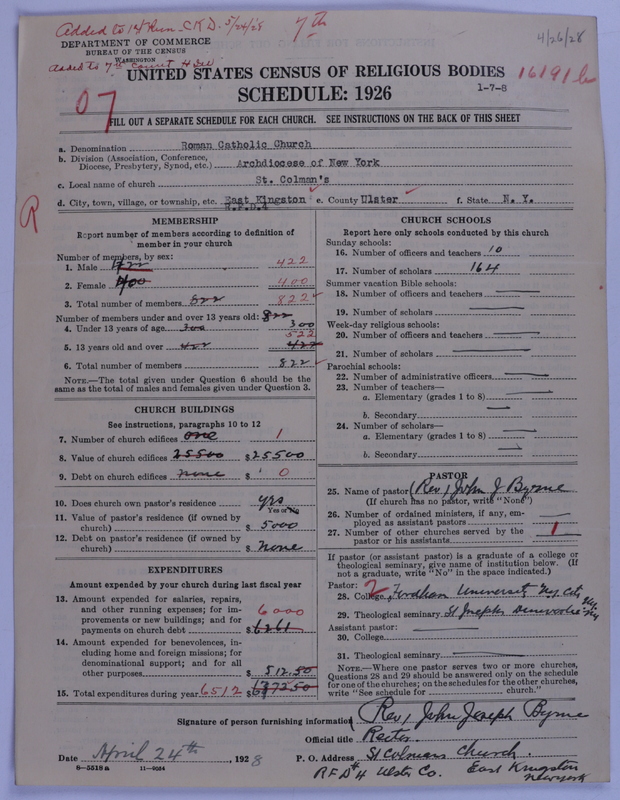 Added to 1st Run - C.K.D. 5/24/29 7th
4/26/28
DEPARTMENT OF COMMERCE
BUREAU OF THE CENSUS
WASHINGTON
Added to 7th Count
UNITED STATES CENSUS OF RELIGIOUS BODIES
16191
SCHEDULE: 1926
1-7-8
07
FILL OUT A SEPARATE SCHEDULE FOR EACH CHURCH. SEE INSTRUCTIONS ON THE BACK OF THIS SHEET
a. Denomination Roman Catholic Church
b. Division (Association, Conference, Diocese, Presbytery, Synod, etc.) Archdiocese of New York
c. Local name of church St. Colman's
d. City, town, village, or township, etc. East Kingston e. County Ulster f. State N. Y.
R.F.D.4
R
MEMBERSHIP
Report number of members according to definition of
member in your church
Number of members, by sex:
1. Male 422
2. Female 400 400
3. Total number of members 822
Number of members under and over 13 years old: 822
4. Under 13 years of age 300 300
522
5. 13 years old and over 422 422
6. Total number of members 822
NOTE.—The total given under Question 6 should be
same as the total of males and females given under Question 3.
CHURCH BUILDINGS
See instructions, paragraphs 10 to 12
7. Number of church edifices one 1
8. Value of church edifices 25500 $25500
9. Debt on church edifices none $ 0
10. Does church own pastor's residence yes
Yes or No
11. Value of pastor's residence (if owned by
church) $ 5000
12. Debt on pastor's residence (if owned by
church) $ none
EXPENDITURES
Amount expended by your church during last fiscal year
13. Amount expended for salaries, repairs,
and other running expenses; for im-
provements or new buildings; and for
payments on church debt 6000 $6261
14. Amount expended for benevolences, in-
cluding home and foreign missions; for
denominational support; and for all
other purposes $ 512.50
15. Total expenditures during year 6512 $
CHURCH SCHOOLS
Report here only schools conducted by this church
Sunday schools:
16. Number of officers and teachers 10
17. Number of scholars 164
Summer vacation Bible schools:
18. Number of officers and teachers
19. Number of scholars
Week-day religious schools:
20. Number of officers and teachers
21. Number of scholars
Parochial schools:
22. Number of administrative officers
23. Number of teachers—
a. Elementary (grades 1 to 8)
b. Secondary
24. Number of scholars—
a. Elementary (grades 1 to 8)
b. Secondary
PASTOR
25. Name of pastor (Rev) John J Byrne
(If church has no pastor, write "None")
26. Number of ordained ministers, if any, em-
ployed as assistant pastors
27. Number of other churches served by the
pastor or his assistants 1
If pastor (or assistant pastor) is a graduate of a college or
theological seminary, give name of institution below. (If
not a graduate, write "No" in the space indicated.)
Pastor: 2
28. College Fordham University Ny City
29. Theological seminary St Josephs Ny
Assistant pastor:
30. College
31. Theological seminary
NOTE.—Where one pastor serves two or more churches,
Questions 28 and 29 should be answered only on the schedule
for one of the churches; on the schedules for the other churches,
write "See schedule for church."
Signature of person furnishing information (Rev) John Joseph Byrne
Official title Rector
Date April 24th, 1928 P. O. Address St Colmans Church.
8-5518 a 11-9054
RFD #4 Ulster Co. East Kingston
New York